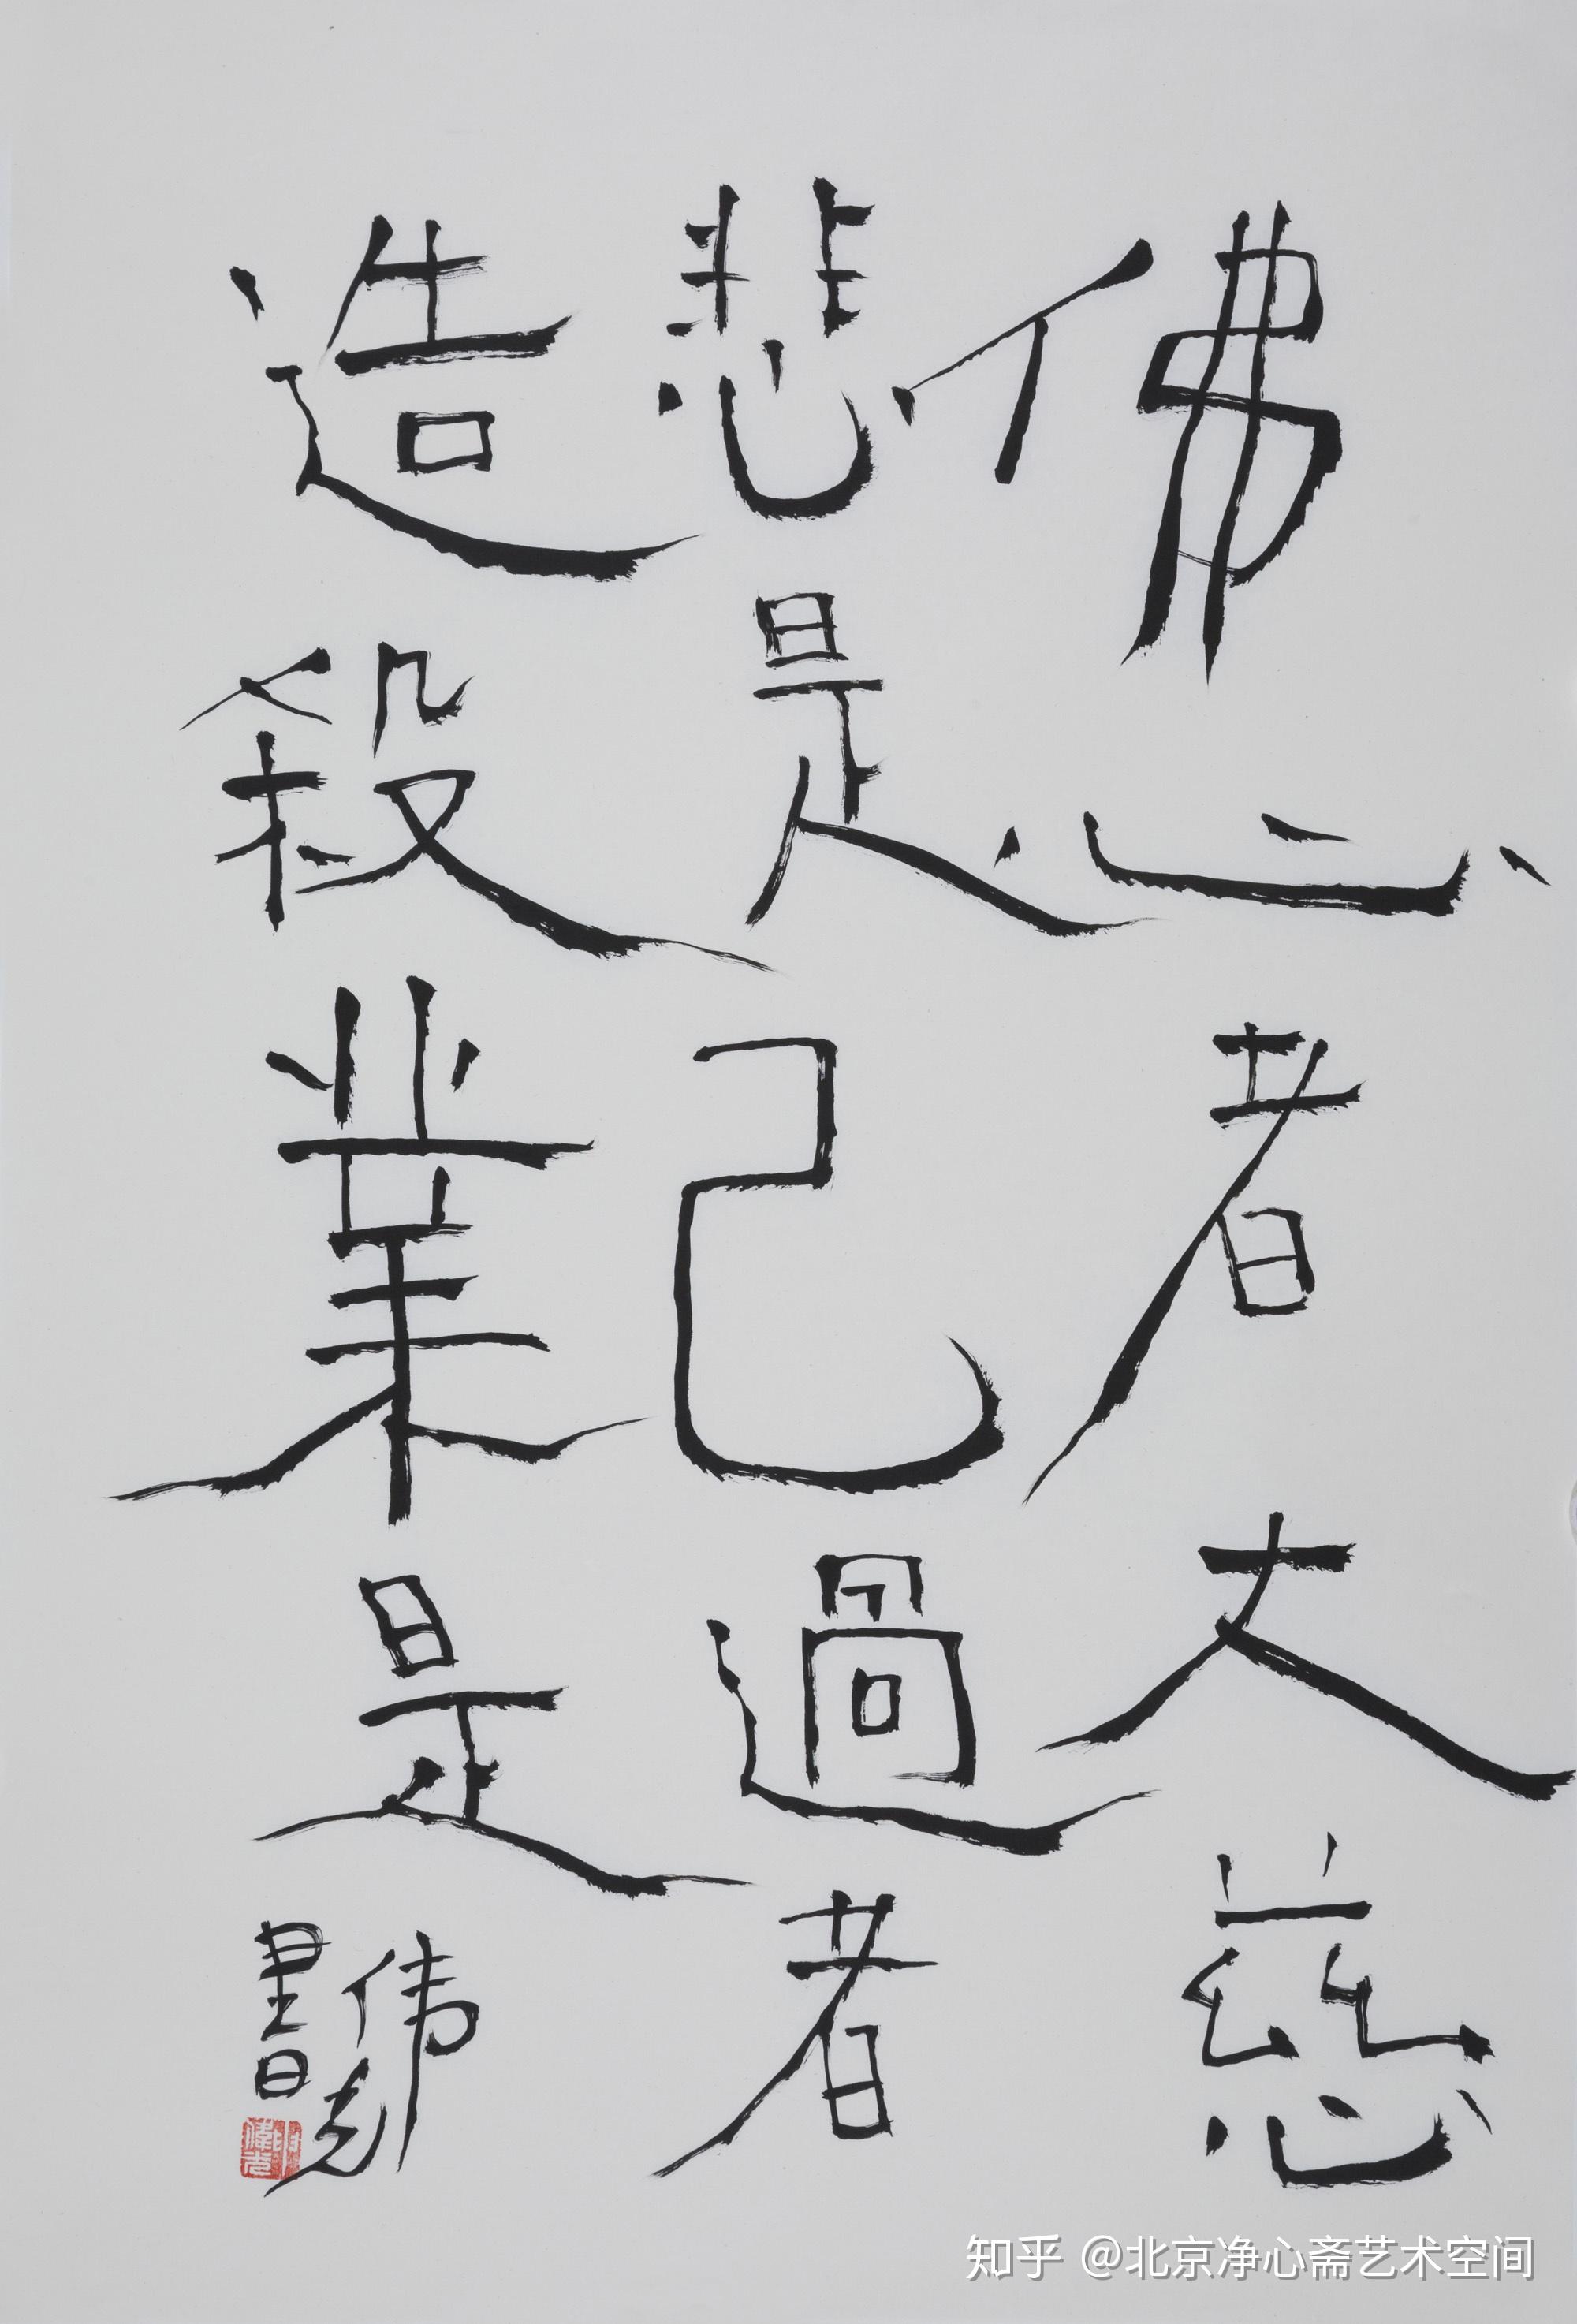 佛心者大慈
悲是己過者
造殺業是
伟光
書
知乎 @北京净心斋艺术空间